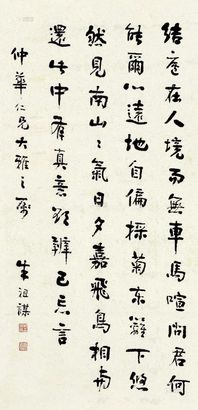 結廬在人境而無車馬喧問君何
能爾心遠地自偏採菊東籬下悠
然見南山〻氣日夕嘉飛鳥相與
還此中有真意欲辨已忘言
仲華仁兄大雅之屬 朱祖謀